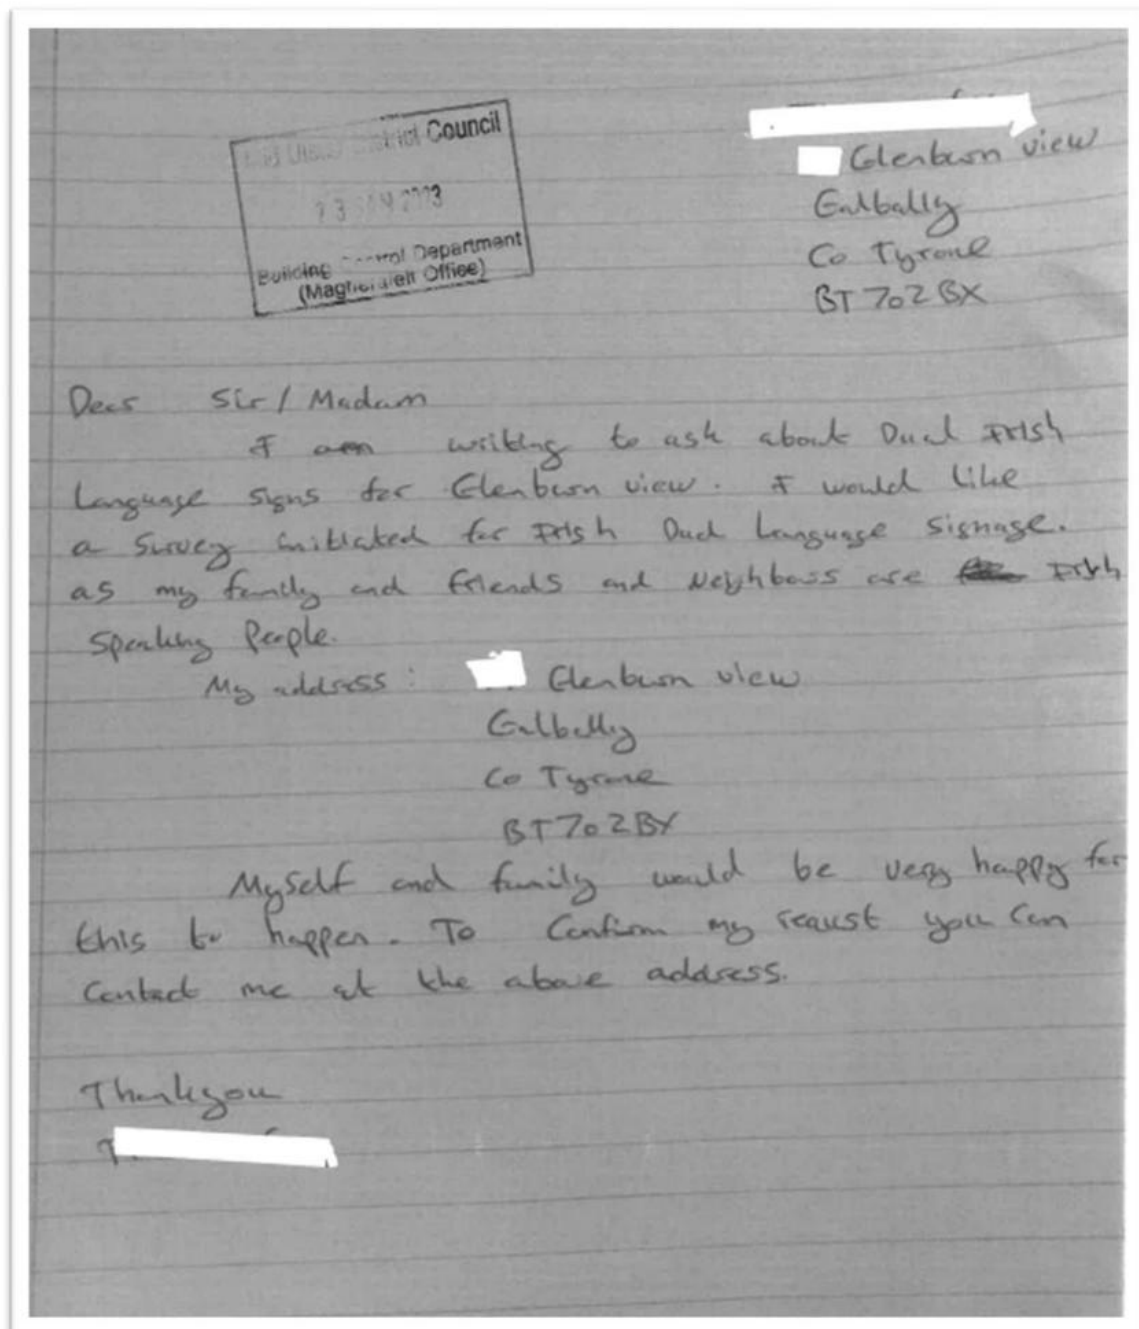 District Council
2023
Building Control Department
(Magherafelt Office)
Glenburn view
Galbally
Co Tyrone
BT702BX
Dear Sir / Madam
I am writing to ask about Dual Irish
Language signs for Glenburn view. I would like
a survey initiated for Irish Dual Language Signage.
as my family and friends and Neighbours are Irish
Speaking People.
My address : Glenburn view
Galbally
Co Tyrone
BT702BX
Myself and family would be very happy for
this to happen. To Confirm my request you can
Contact me at the above address.
Thankyou